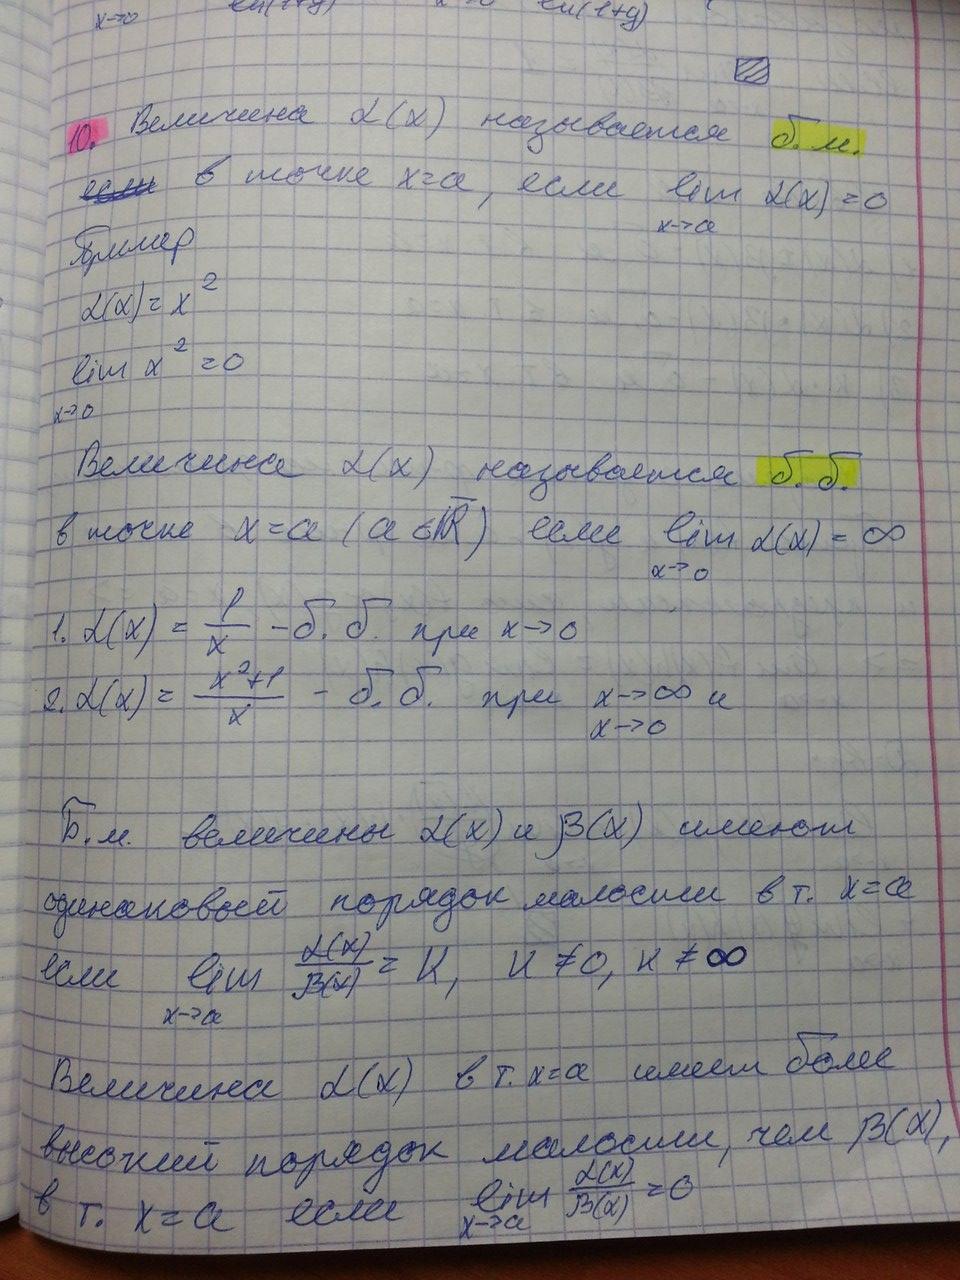 x→0 ln(1+y) x→0 ln(1+y)
10. Величина α(x) называется б.м.
если в точке x=a, если lim α(x)=0
x→a
Пример
α(x)=x²
lim x²=0
x→0
Величина α(x) называется б.б.
в точке x=a (a∈R̄) если lim α(x)=∞
x→0
1. α(x)=1/x -б.б. при x→0
2. α(x)=x²+1/x - б.б. при x→∞ и
x→0
Б.м. величины α(x) и β(x) имеют
одинаковый порядок малости в т. x=a
если lim α(x)/β(x)=K, K≠0, K≠∞
x→a
Величина α(x) в т. x=a имеет более
высокий порядок малости, чем β(x),
в т. x=a если lim α(x)/β(x)=0
x→a